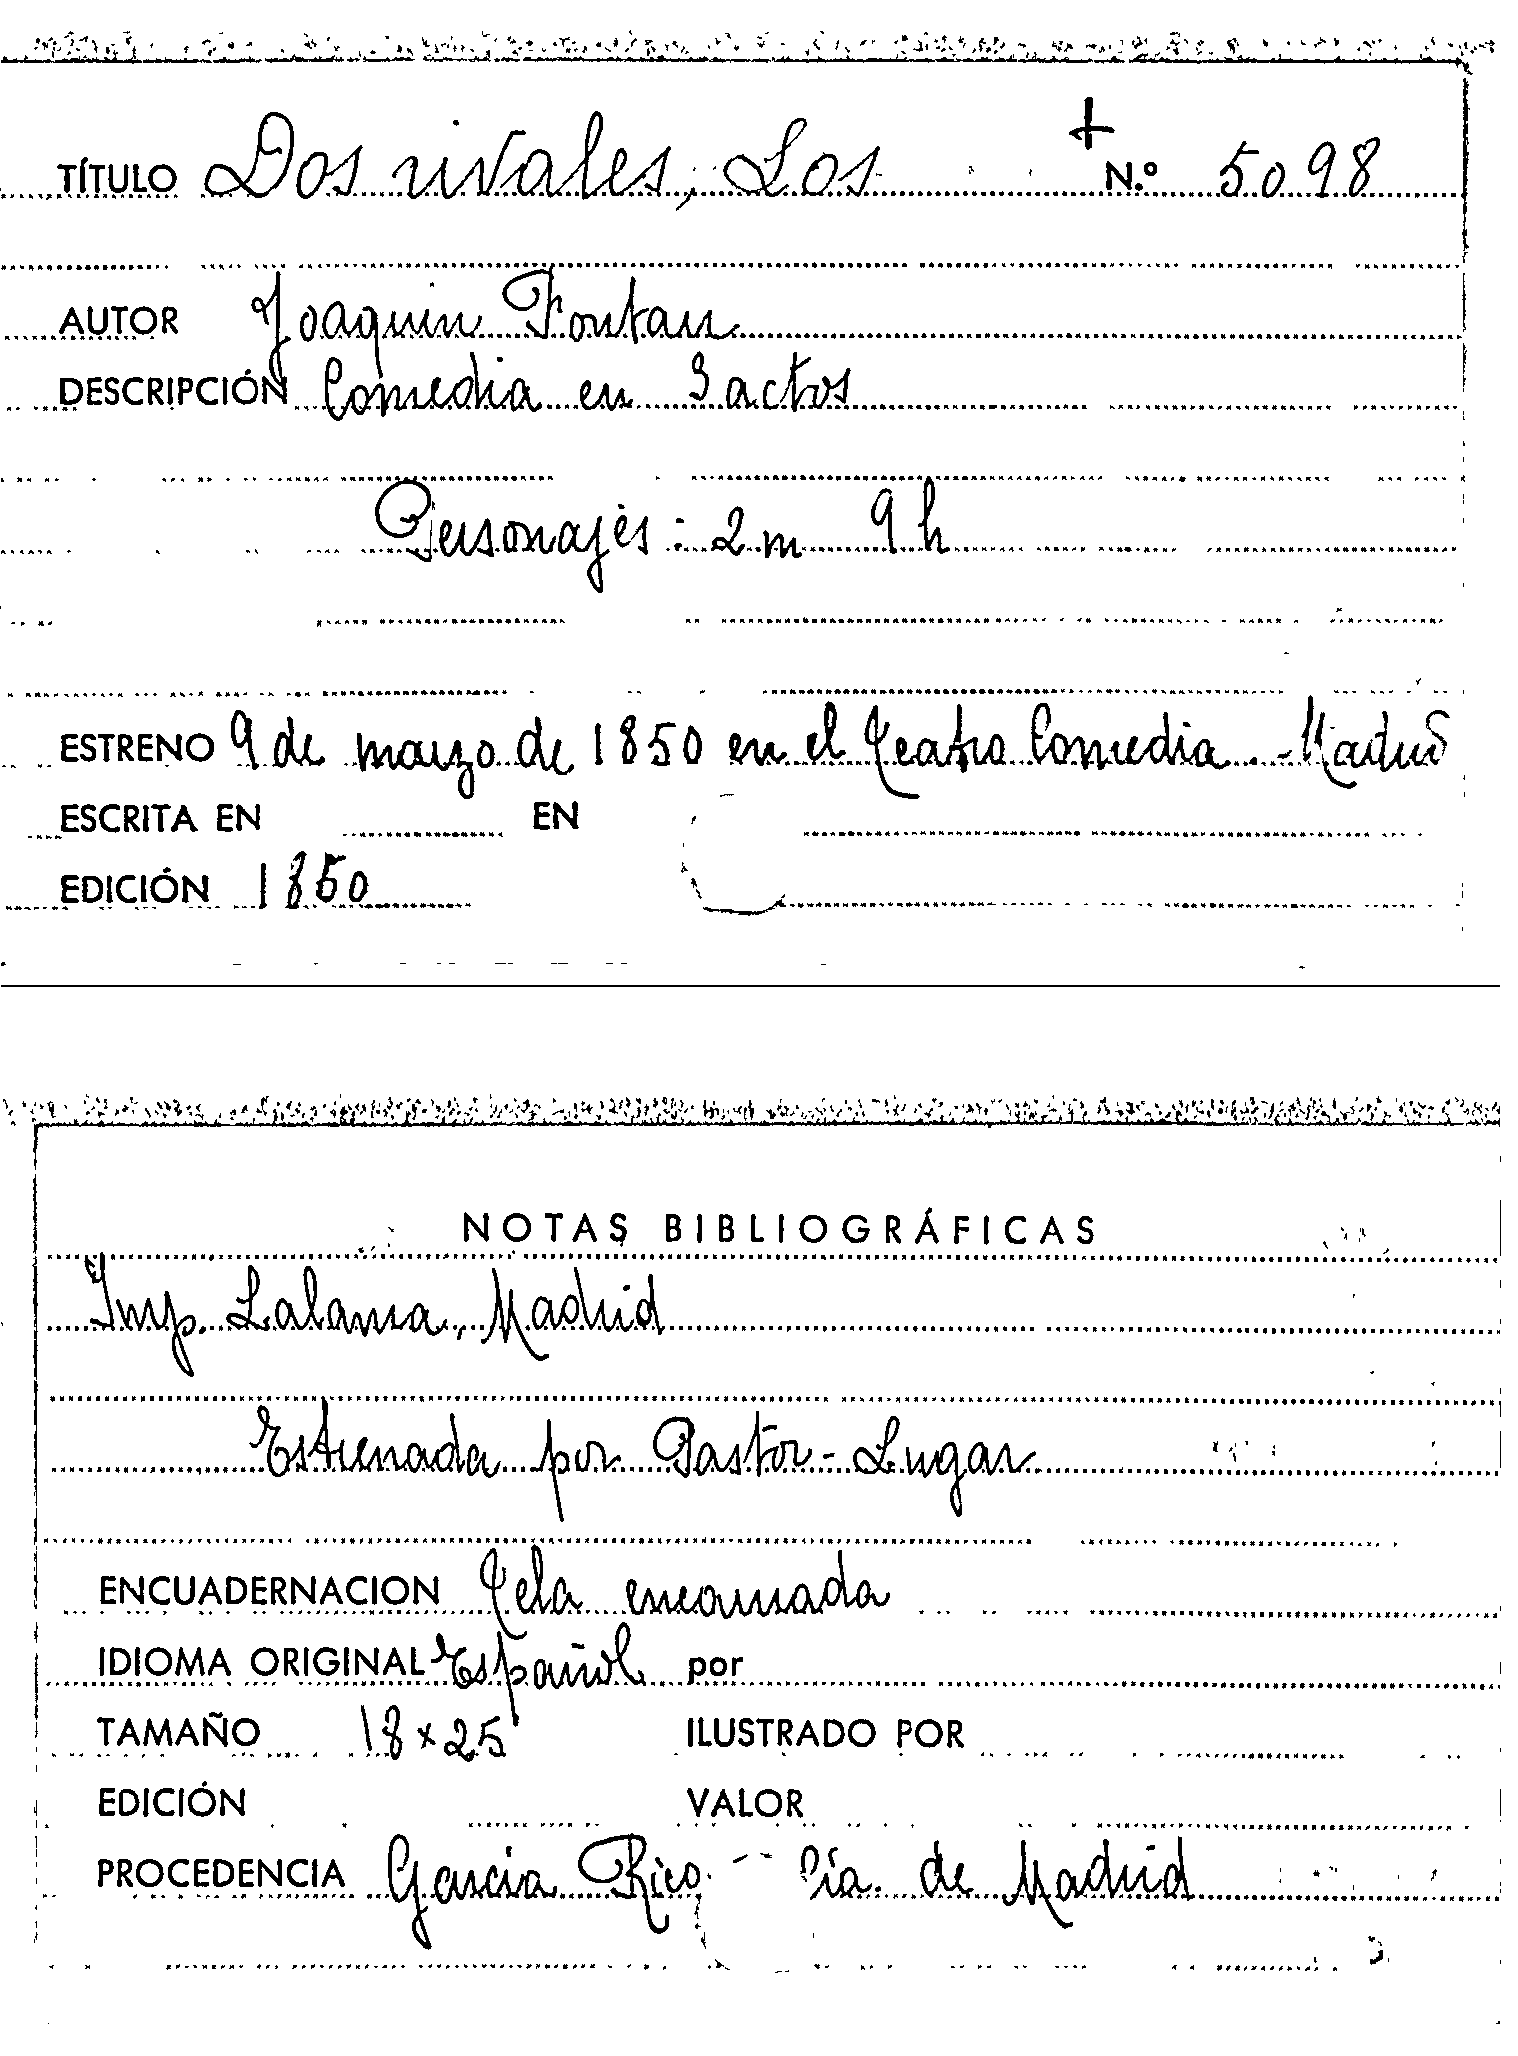 +
TÍTULO Dos rivales, Los N.º 5098
AUTOR Joaquin Fontan
DESCRIPCIÓN Comedia en 3 actos
Personajes: 2 m 9 h
ESTRENO 9 de marzo de 1850 en el Teatro Comedia. - Madrid
ESCRITA EN EN
EDICIÓN 1850
NOTAS BIBLIOGRÁFICAS
Imp. Lalama, Madrid
Estrenada por Pastor - Lugar
ENCUADERNACION Tela encarnada
IDIOMA ORIGINAL Español por
TAMAÑO 18 x 25 ILUSTRADO POR
EDICIÓN VALOR
PROCEDENCIA Garcia Rico - Cía. de Madrid